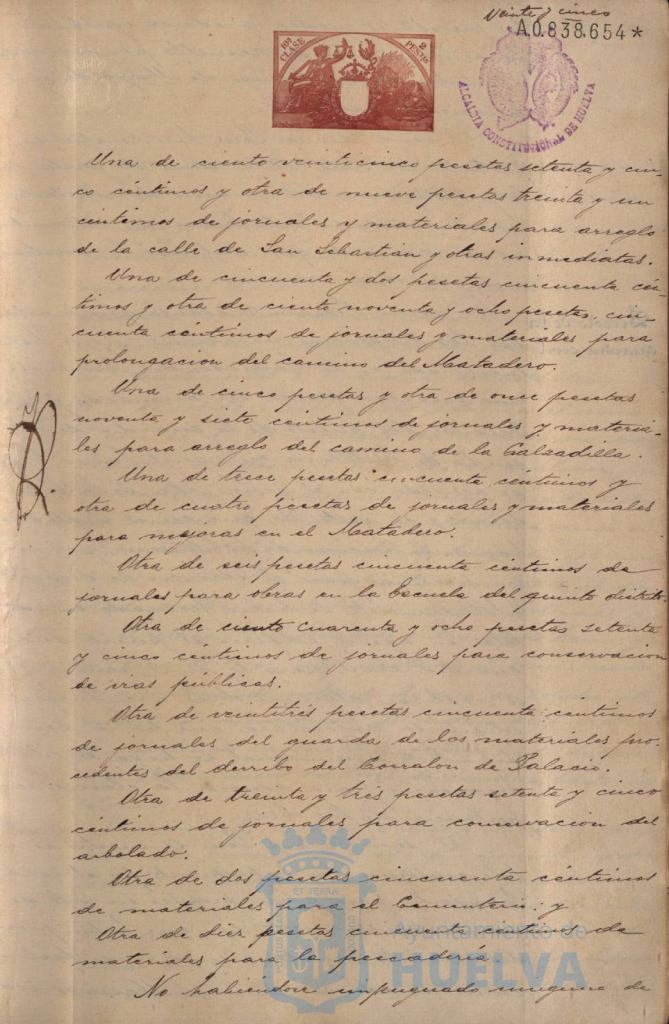 Veinte y cinco
A.0.838.654*
10ª CLASE
2 PESETAS
ALCALDIA CONSTITUCIONAL DE HUELVA
Una de ciento veinticinco pesetas setenta y cin-
co céntimos y otra de nueve pesetas treinta y un
céntimos de jornales y materiales para arreglo
de la calle de San Sebastian y otras inmediatas.
Una de cincuenta y dos pesetas cincuenta cén-
timos y otra de ciento noventa y ocho pesetas, cin-
cuenta céntimos de jornales y materiales para
prolongacion del camino del Matadero.
Una de cinco pesetas y otra de once pesetas
noventa y siete céntimos de jornales y materia-
les para arreglo del camino de la Calzadilla.
Una de trece pesetas cincuenta céntimos y
otra de cuatro pesetas de jornales y materiales
para mejoras en el Matadero.
Otra de seis pesetas cincuenta céntimos de
jornales para obras en la Escuela del quinto distrito.
Otra de ciento cuarenta y ocho pesetas setenta
y cinco céntimos de jornales para conservacion
de vias públicas.
Otra de veintitrés pesetas cincuenta céntimos
de jornales del guarda de los materiales pro-
cedentes del derribo del Corralon de Palacio.
Otra de treinta y trés pesetas setenta y cinco
céntimos de jornales para conservacion del
arbolado.
Otra de dos pesetas cincuenta céntimos
de materiales para el Cementerio; y
Otra de diez pesetas cincuenta céntimos de
materiales para la pescadería.
No habiéndose impugnado ninguna de
Ayuntamiento de
HUELVA